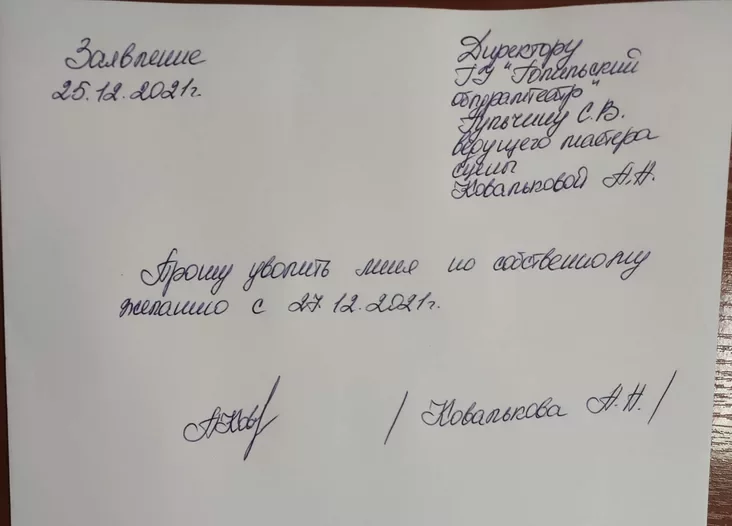 Заявление
25.12.2021г.
Директору
ГУ "Гомельский
облдрамтеатр"
С.В.
ведущего мастера
сцены
Ковальковой А.Н.
Прошу уволить меня по собственному
желанию с 27.12.2021г.
/ Ковалькова А.Н. /